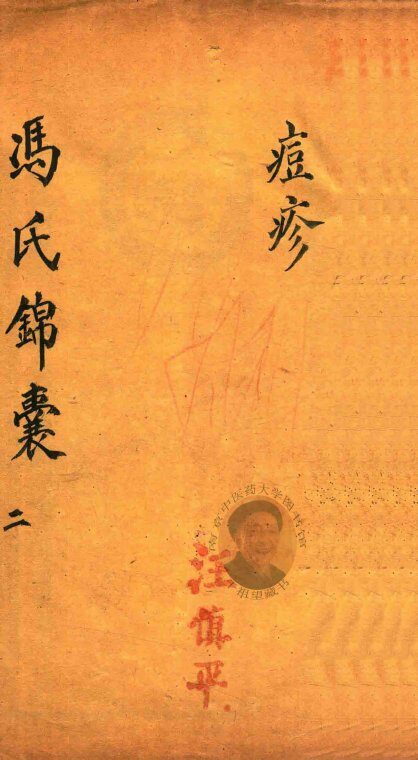 痘疹
馮氏錦囊 二
南京中医药大学图书馆
祖望藏书
汪慎平